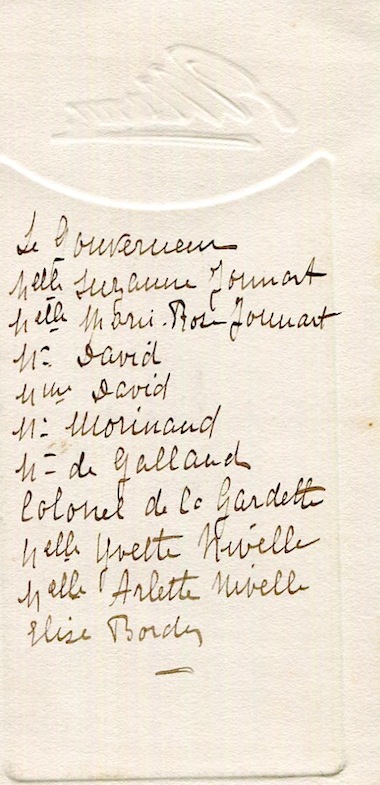 Le Gouverneur
Melle Suzanne Jonnart
Melle Marie-Rose Jonnart
Mr David
Mme David
Mr Morinaud
Mr de Galland
Colonel de la Gardette
Melle Yvette Nivelle
Melle Arlette Nivelle
Elise Bordes